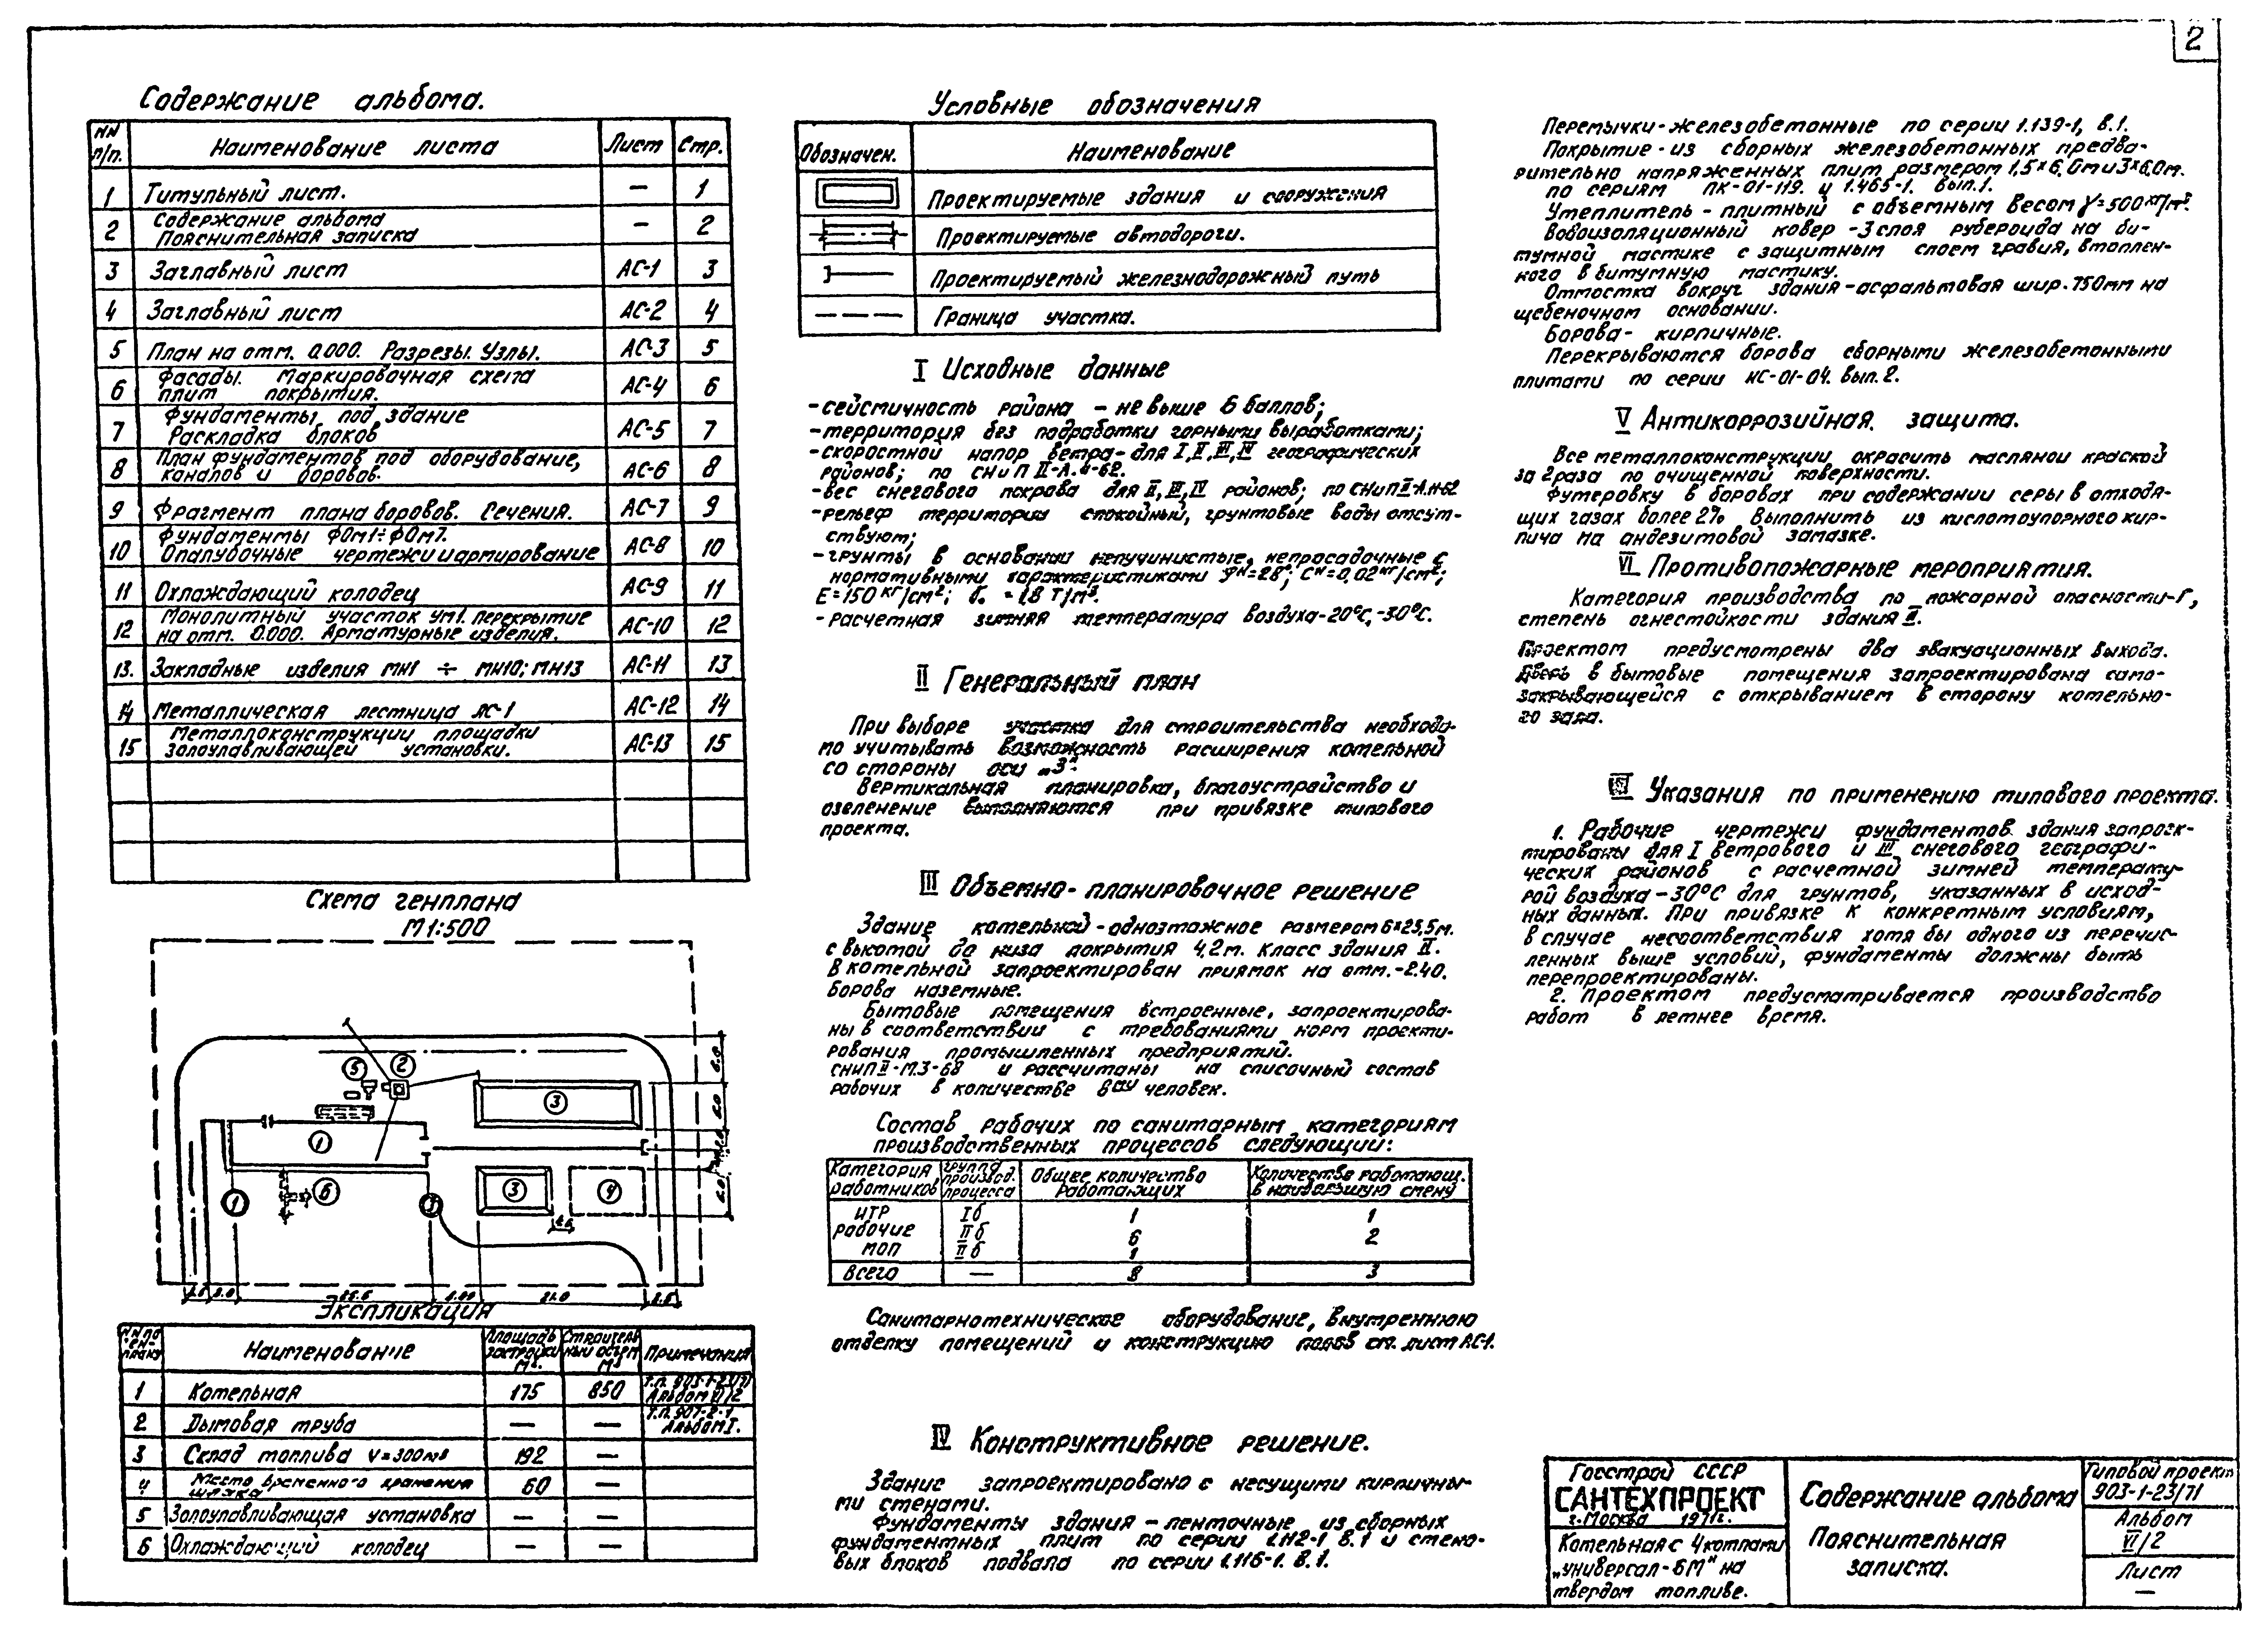 2
Содержание альбома.
NN п/п. Наименование листа Лист Стр.
1 Титульный лист. — 1
2 Содержание альбома
Пояснительная записка — 2
3 Заглавный лист АС-1 3
4 Заглавный лист АС-2 4
5 План на отм. 0.000. Разрезы. Узлы. АС-3 5
6 Фасады. Маркировочная схема
плит покрытия. АС-4 6
7 Фундаменты под здание
Раскладка блоков АС-5 7
8 План фундаментов под оборудование,
каналов и боровов. АС-6 8
9 Фрагмент плана боровов. Сечения. АС-7 9
10 Фундаменты ФОМ1÷ФОМ7.
Опалубочные чертежи и армирование АС-8 10
11 Охлаждающий колодец АС-9 11
12 Монолитный участок УМ1. перекрытие
на отм. 0.000. Арматурные изделия. АС-10 12
13. Закладные изделия МН1 ÷ МН10; МН13 АС-11 13
14 Металлическая лестница ЛС-1 АС-12 14
15 Металлоконструкции площадки
золоулавливающей установки. АС-13 15
Схема генплана
М 1:500
5 2
3
1
3 4
6
1 7
6.0
6.0
6.0
25.5
21.0
Экспликация
NN по ген-плану Наименование Площадь застройки М². Строительный объем М³ Примечания
1 Котельная 175 850 Т.П. 903-1-23/71
Альбом VI/2
2 Дымовая труба — — Т.П. 907-2-1
Альбом I.
3 Склад топлива V=300м³ 192 —
4 Место временного хранения
шлака 60 —
5 Золоулавливающая установка — —
6 Охлаждающий колодец — —
Условные обозначения
Обозначен. Наименование
Проектируемые здания и сооружения
Проектируемые автодороги.
Проектируемый железнодорожный путь
Граница участка.
I Исходные данные
-сейсмичность района - не выше 6 баллов;
-территория без подработки горными выработками;
-скоростной напор ветра- для I, II, III, IV географических
районов; по СНиП II-А. 11-62.
-вес снегового покрова для II, III, IV районов; по СНиП II-А.11-62
-рельеф территории спокойный, грунтовые воды отсут-
ствуют;
-грунты в основании непучинистые, непросадочные с
нормативными характеристиками φн=28°; Сн=0,02 кг/см²;
Е=150 кг/см²; γ₀ = 1,8 т/м³.
-расчетная зимняя температура воздуха-20°С,-30°С.
II Генеральный план
При выборе участка для строительства необходи-
мо учитывать возможность расширения котельной
со стороны оси „3".
Вертикальная планировка, благоустройство и
озеленение выполняются при привязке типового
проекта.
III Объемно-планировочное решение
Здание котельной-одноэтажное размером 6х25,5м.
с высотой до низа покрытия 4,2м. Класс здания II.
В котельной запроектирован приямок на отм.-2.40.
Борова наземные.
Бытовые помещения встроенные, запроектирова-
ны в соответствии с требованиями норм проекти-
рования промышленных предприятий.
СНиП II-М.3-68 и рассчитаны на списочный состав
рабочих в количестве 8ми человек.
Состав рабочих по санитарным категориям
производственных процессов следующий:
Категория работников Группа производ. процесса Общее количество работающих Количество работающ. в наибольшую смену
ИТР Iб 1 1
рабочие IIб 6 2
МОП IIб 1
всего — 8 3
Санитарнотехническое оборудование, внутреннюю
отделку помещений и конструкцию полов см. лист АС-1.
IV Конструктивное решение.
Здание запроектировано с несущими кирпичны-
ми стенами.
Фундаменты здания - ленточные из сборных
фундаментных плит по серии 1.112-1 в.1 и стено-
вых блоков подвала по серии 1.116-1. в.1.
Перемычки-железобетонные по серии 1.139-1, в.1.
Покрытие-из сборных железобетонных предва-
рительно напряженных плит размером 1,5х6,0м и 3х6,0м.
по сериям ПК-01-119. и 1.465-1. вып.1.
Утеплитель - плитный с объемным весом γ=500кг/м³.
Водоизоляционный ковер -3 слоя рубероида на би-
тумной мастике с защитным слоем гравия, втоплен-
ного в битумную мастику.
Отмостка вокруг здания-асфальтовая шир.750мм на
щебеночном основании.
Борова- кирпичные.
Перекрываются борова сборными железобетонными
плитами по серии ИС-01-04. вып. 2.
V Антикоррозийная. защита.
Все металлоконструкции окрасить масляной краской
за 2 раза по очищенной поверхности.
Футеровку в боровах при содержании серы в отходя-
щих газах более 2% выполнить из кислотоупорного кир-
пича на андезитовой замазке.
VI Противопожарные мероприятия.
Категория производства по пожарной опасности-Г,
степень огнестойкости здания II.
Проектом предусмотрены два эвакуационных выхода.
Дверь в бытовые помещения запроектирована само-
закрывающейся с открыванием в сторону котельно-
го зала.
VII Указания по применению типового проекта.
1. Рабочие чертежи фундаментов здания запроек-
тированы для I ветрового и III снегового географи-
ческих районов с расчетной зимней температу-
рой воздуха -30°С для грунтов, указанных в исход-
ных данных. При привязке к конкретным условиям,
в случае несоответствия хотя бы одного из перечис-
ленных выше условий, фундаменты должны быть
перепроектированы.
2. Проектом предусматривается производство
работ в летнее время.
Госстрой СССР
САНТЕХПРОЕКТ
г. Москва 1971г.
Котельная с 4 котлами
„Универсал-6М" на
твердом топливе.
Содержание альбома
Пояснительная
записка.
Типовой проект
903-1-23/71
Альбом
VI/2
Лист
—